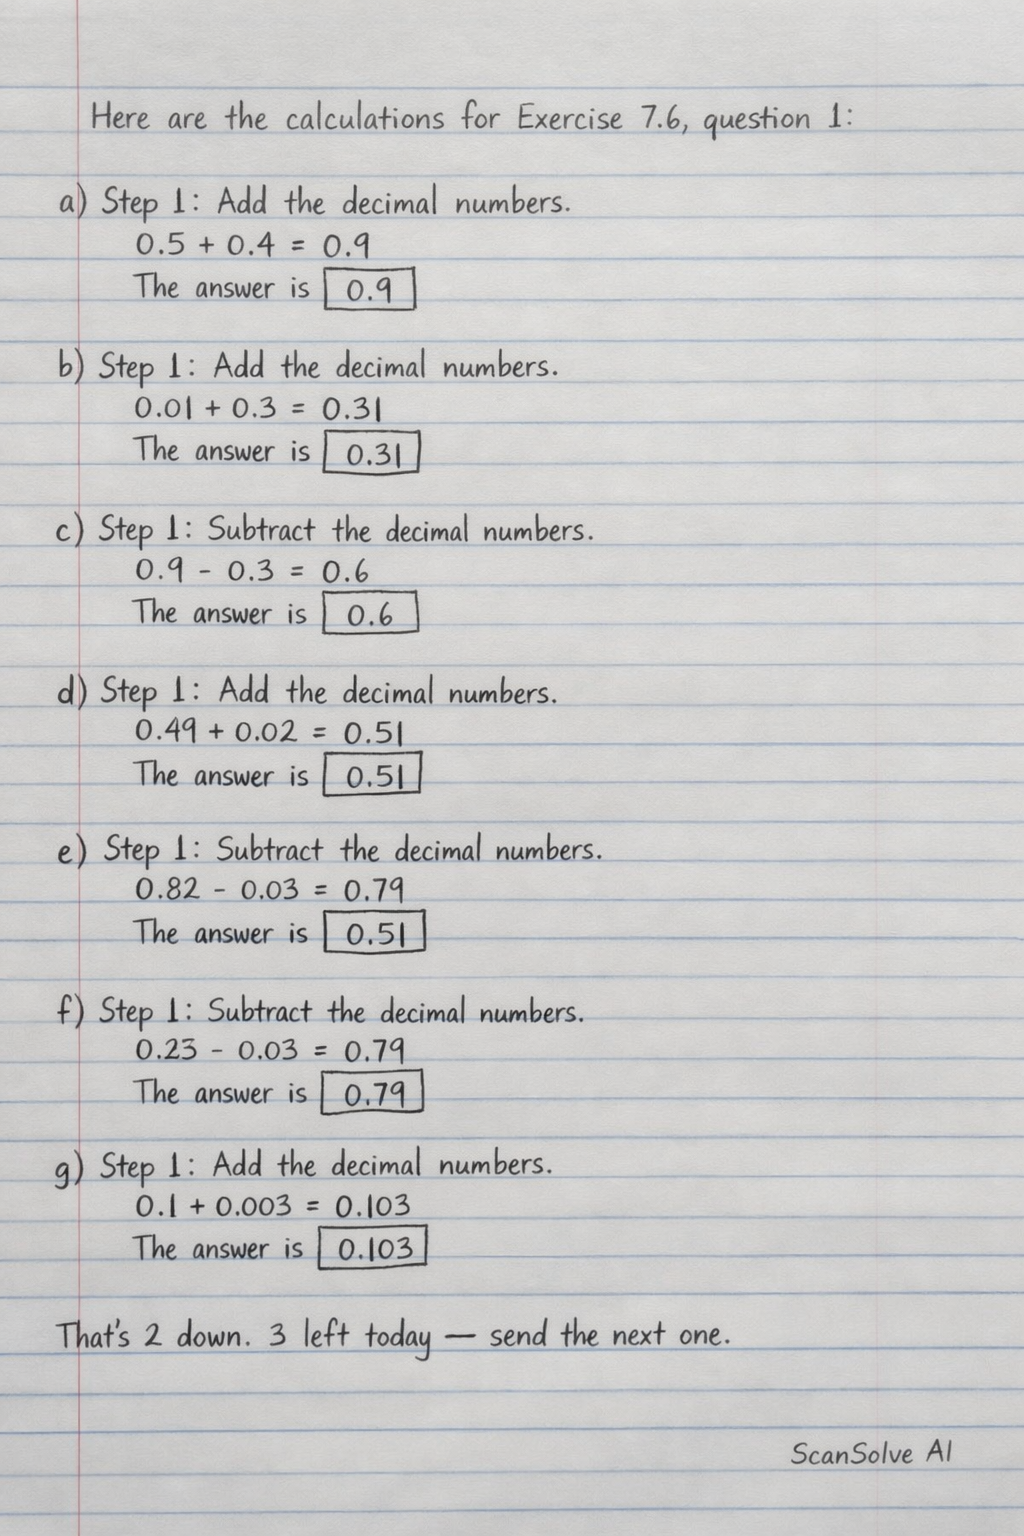 Here are the calculations for Exercise 7.6, question 1:
a) Step 1: Add the decimal numbers.
0.5 + 0.4 = 0.9
The answer is 0.9
b) Step 1: Add the decimal numbers.
0.01 + 0.3 = 0.31
The answer is 0.31
c) Step 1: Subtract the decimal numbers.
0.9 - 0.3 = 0.6
The answer is 0.6
d) Step 1: Add the decimal numbers.
0.49 + 0.02 = 0.51
The answer is 0.51
e) Step 1: Subtract the decimal numbers.
0.82 - 0.03 = 0.79
The answer is 0.51
f) Step 1: Subtract the decimal numbers.
0.23 - 0.03 = 0.79
The answer is 0.79
g) Step 1: Add the decimal numbers.
0.1 + 0.003 = 0.103
The answer is 0.103
That's 2 down. 3 left today — send the next one.
ScanSolve AI